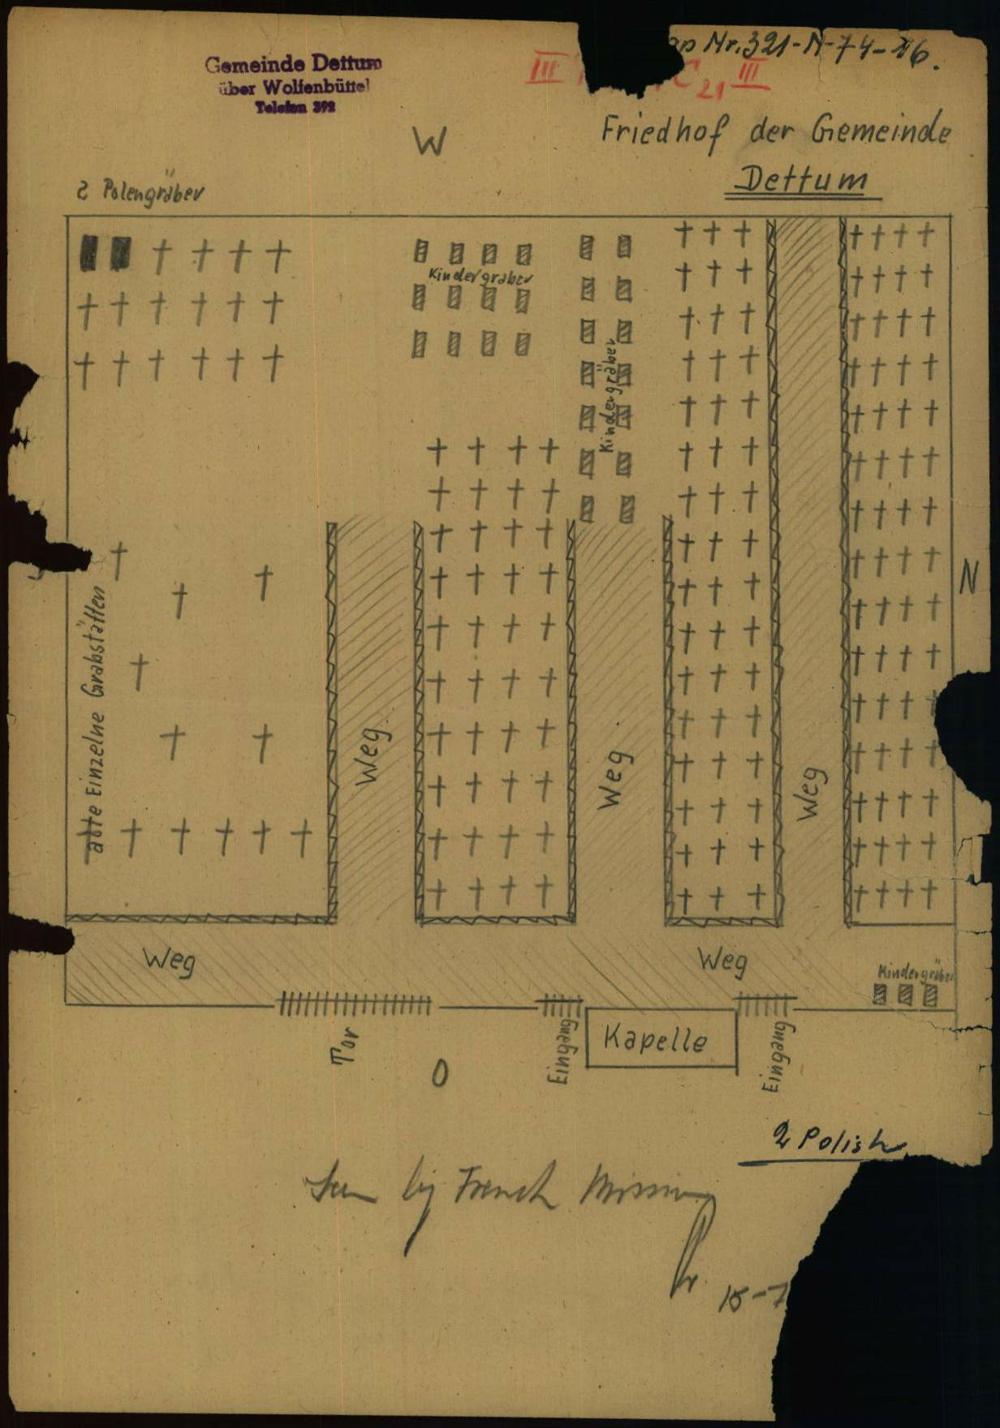 Gemeinde Dettum
über Wolfenbüttel
Telefon 392
Nr. 321-N-74-16.
III C 21 III
Friedhof der Gemeinde
Dettum
W
2 Polengräber
Kindergräber
Kindergräber
N
alte Einzelne Grabstätten
Weg
Weg
Weg
Weg
Weg
Kindergräber
Tor
Eingang
Kapelle
Eingang
O
2 Polish
Seen by French Mission
15-7